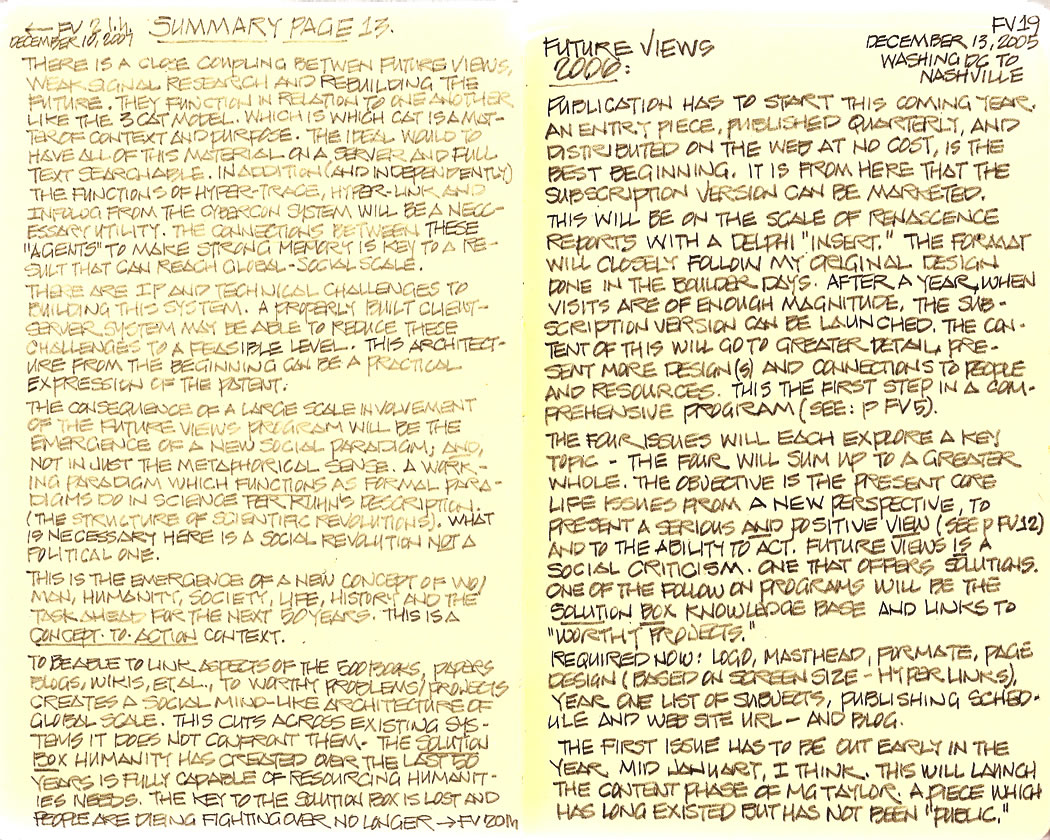 ← FV 21h SUMMARY PAGE 13.
DECEMBER 10, 2007
THERE IS A CLOSE COUPLING BETWEN FUTURE VIEWS,
WEAK SIGNAL RESEARCH AND REBUILDING THE
FUTURE. THEY FUNCTION IN RELATION TO ONE ANOTHER
LIKE THE 3 CAT MODEL. WHICH IS WHICH CAT IS A MAT-
TER OF CONTEXT AND PURPOSE. THE IDEAL WOULD TO
HAVE ALL OF THIS MATERIAL ON A SERVER AND FULL
TEXT SEARCHABLE. IN ADDITION (AND INDEPENDENTLY)
THE FUNCTIONS OF HYPER-TRACE, HYPER-LINK AND
INFOLOG FROM THE CYBERCON SYSTEM WILL BE A NECC-
ESSARY UTILITY. THE CONNECTIONS BETWEEN THESE
"AGENTS" TO MAKE STRONG MEMORY IS KEY TO A RE-
SULT THAT CAN REACH GLOBAL-SOCIAL SCALE.
THERE ARE IP AND TECHNICAL CHALLENGES TO
BUILDING THIS SYSTEM. A PROPERLY BUILT CLIENT-
SERVER SYSTEM MAY BE ABLE TO REDUCE THESE
CHALLENGES TO A FEASIBLE LEVEL. THIS ARCHITECT-
URE FROM THE BEGINNING CAN BE A PRACTICAL
EXPRESSION OF THE PATENT.
THE CONSEQUENCE OF A LARGE SCALE INVOLVEMENT
OF THE FUTURE VIEWS PROGRAM WILL BE THE
EMERGENCE OF A NEW SOCIAL PARADIGM; AND,
NOT IN JUST THE METAPHORICAL SENSE. A WORK-
ING PARADIGM WHICH FUNCTIONS AS FORMAL PARA-
DIGMS DO IN SCIENCE PER KUHN'S DESCRIPTION.
(THE STRUCTURE OF SCIENTIFIC REVOLUTIONS). WHAT
IS NECESSARY HERE IS A SOCIAL REVOLUTION NOT A
POLITICAL ONE.
THIS IS THE EMERGENCE OF A NEW CONCEPT OF WO/
MAN, HUMANITY, SOCIETY, LIFE, HISTORY AND THE
TASK AHEAD FOR THE NEXT 50 YEARS. THIS IS A
CONCEPT-TO-ACTION CONTEXT.
TO BE ABLE TO LINK ASPECTS OF THE 500 BOOKS, PAPERS
BLOGS, WIKIS, ET. AL., TO WORTHY PROBLEMS/PROJECTS
CREATES A SOCIAL MIND-LIKE ARCHITECTURE OF
GLOBAL SCALE. THIS CUTS ACROSS EXISTING SYS-
TEMS IT DOES NOT CONFRONT THEM- THE SOLUTION
BOX HUMANITY HAS CREATED OVER THE LAST 50
YEARS IS FULLY CAPABLE OF RESOURCING HUMANIT-
IES NEEDS. THE KEY TO THE SOLUTION BOX IS LOST AND
PEOPLE ARE DIEING FIGHTING OVER NO LONGER → FV
FV19
FUTURE VIEWS DECEMBER 13, 2005
2006: WASHING DC TO
NASHVILLE
PUBLICATION HAS TO START THIS COMING YEAR.
AN ENTRY PIECE, PUBLISHED QUARTERLY, AND
DISTRIBUTED ON THE WEB AT NO COST, IS THE
BEST BEGINNING. IT IS FROM HERE THAT THE
SUBSCRIPTION VERSION CAN BE MARKETED.
THIS WILL BE ON THE SCALE OF RENASCENCE
REPORTS WITH A DELPHI "INSERT." THE FORMAT
WILL CLOSELY FOLLOW MY ORIGINAL DESIGN
DONE IN THE BOULDER DAYS. AFTER A YEAR, WHEN
VISITS ARE OF ENOUGH MAGNITUDE, THE SUB-
SCRIPTION VERSION CAN BE LAUNCHED. THE CON-
TENT OF THIS WILL GO TO GREATER DETAIL, PRE-
SENT MORE DESIGN(S) AND CONNECTIONS TO PEOPLE
AND RESOURCES. THIS THE FIRST STEP IN A COM-
PREHENSIVE PROGRAM (SEE: P FV5).
THE FOUR ISSUES WILL EACH EXPLORE A KEY
TOPIC - THE FOUR WILL SUM UP TO A GREATER
WHOLE. THE OBJECTIVE IS THE PRESENT CORE
LIFE ISSUES FROM A NEW PERSPECTIVE, TO
PRESENT A SERIOUS AND POSITIVE VIEW (SEE P FV12)
AND TO THE ABILITY TO ACT. FUTURE VIEWS IS A
SOCIAL CRITICISM. ONE THAT OFFERS SOLUTIONS.
ONE OF THE FOLLOW ON PROGRAMS WILL BE THE
SOLUTION BOX KNOWLEDGE BASE AND LINKS TO
"WORTHY PROJECTS."
REQUIRED NOW: LOGO, MASTHEAD, FORMATE, PAGE
DESIGN (BASED ON SCREEN SIZE - HYPER LINKS),
YEAR ONE LIST OF SUBJECTS, PUBLISHING SCHED-
ULE AND WEB SITE URL - AND BLOG.
THE FIRST ISSUE HAS TO BE OUT EARLY IN THE
YEAR MID JANUARY, I THINK. THIS WILL LAUNCH
THE CONTENT PHASE OF MG TAYLOR. A PIECE WHICH
HAS LONG EXISTED BUT HAS NOT BEEN "PUBLIC."